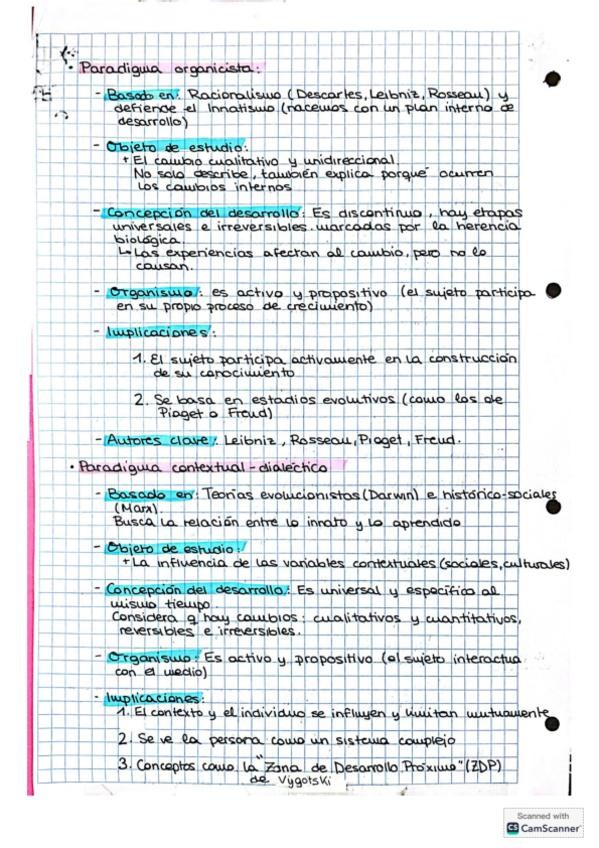 • Paradigma organicista:
- Basado en: Racionalismo (Descartes, Leibniz, Rosseau) y
defiende el Innatismo (nacemos con un plan interno de
desarrollo)
- Objeto de estudio:
+ El cambio cualitativo y unidireccional.
No solo describe, también explica porqué ocurren
los cambios internos
- Concepción del desarrollo: Es discontinuo, hay etapas
universales e irreversibles marcadas por la herencia
biológica.
↳ Las experiencias afectan al cambio, pero no lo
causan.
- Organismo: es activo y propositivo (el sujeto participa
en su propio proceso de crecimiento)
- Implicaciones:
1. El sujeto participa activamente en la construcción
de su conocimiento
2. Se basa en estadios evolutivos (como los de
Piaget o Freud)
- Autores clave: Leibniz, Rosseau, Piaget, Freud.
• Paradigma contextual-dialéctico
- Basado en: Teorías evolucionistas (Darwin) e histórico-sociales
(Marx).
Busca la relación entre lo innato y lo aprendido
- Objeto de estudio:
+ La influencia de las variables contextuales (sociales, culturales)
- Concepción del desarrollo: Es universal y específico al
mismo tiempo.
Considera q hay cambios: cualitativos y cuantitativos,
reversibles e irreversibles.
- Organismo: Es activo y propositivo (el sujeto interactua
con el medio)
- Implicaciones:
1. El contexto y el individuo se influyen y limitan mutuamente
2. Se ve la persona como un sistema complejo
3. Conceptos como la "Zona de Desarrollo Próximo" (ZDP)
de Vygotski
Scanned with
CS CamScanner